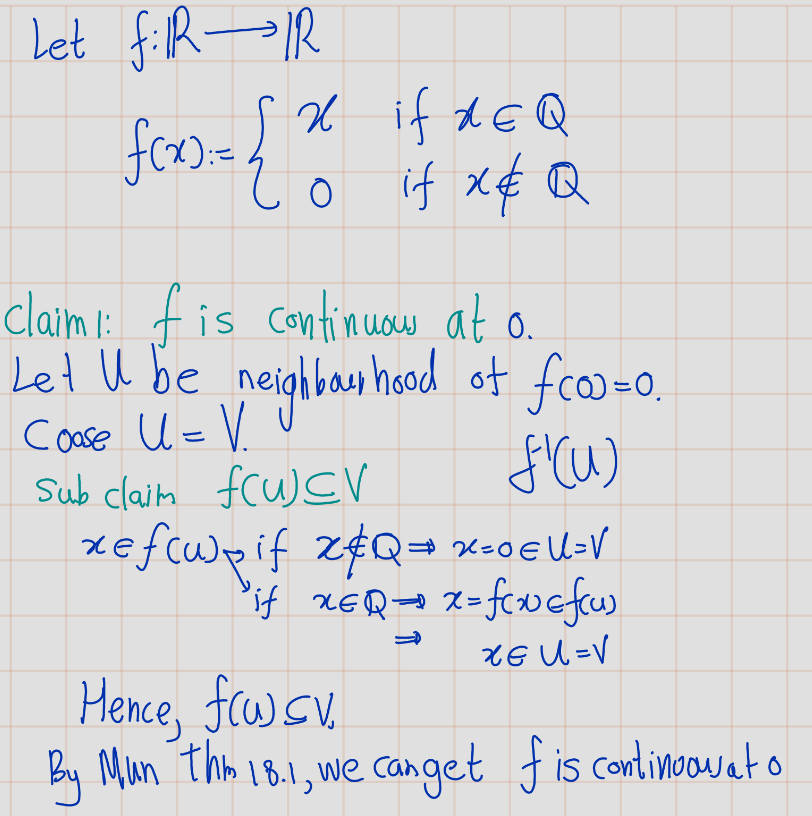 Let f: ℝ ⟶ ℝ
f(x) := { x if x ∈ ℚ
0 if x ∉ ℚ
Claim 1: f is continuous at 0.
Let U be neighbourhood of f(0)=0.
Coose U = V.
f⁻¹(U)
Sub claim f(U) ⊆ V
x ∈ f(U) → if x ∉ ℚ ⇒ x = 0 ∈ U = V
↘ if x ∈ ℚ ⇒ x = f(x) ∈ f(U)
⇒ x ∈ U = V
Hence, f(U) ⊆ V.
By Mun Thm 18.1, we can get f is continuous at 0